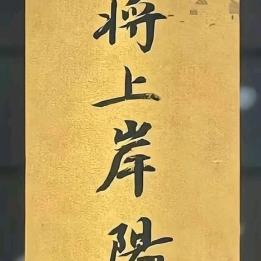 將上岸陽